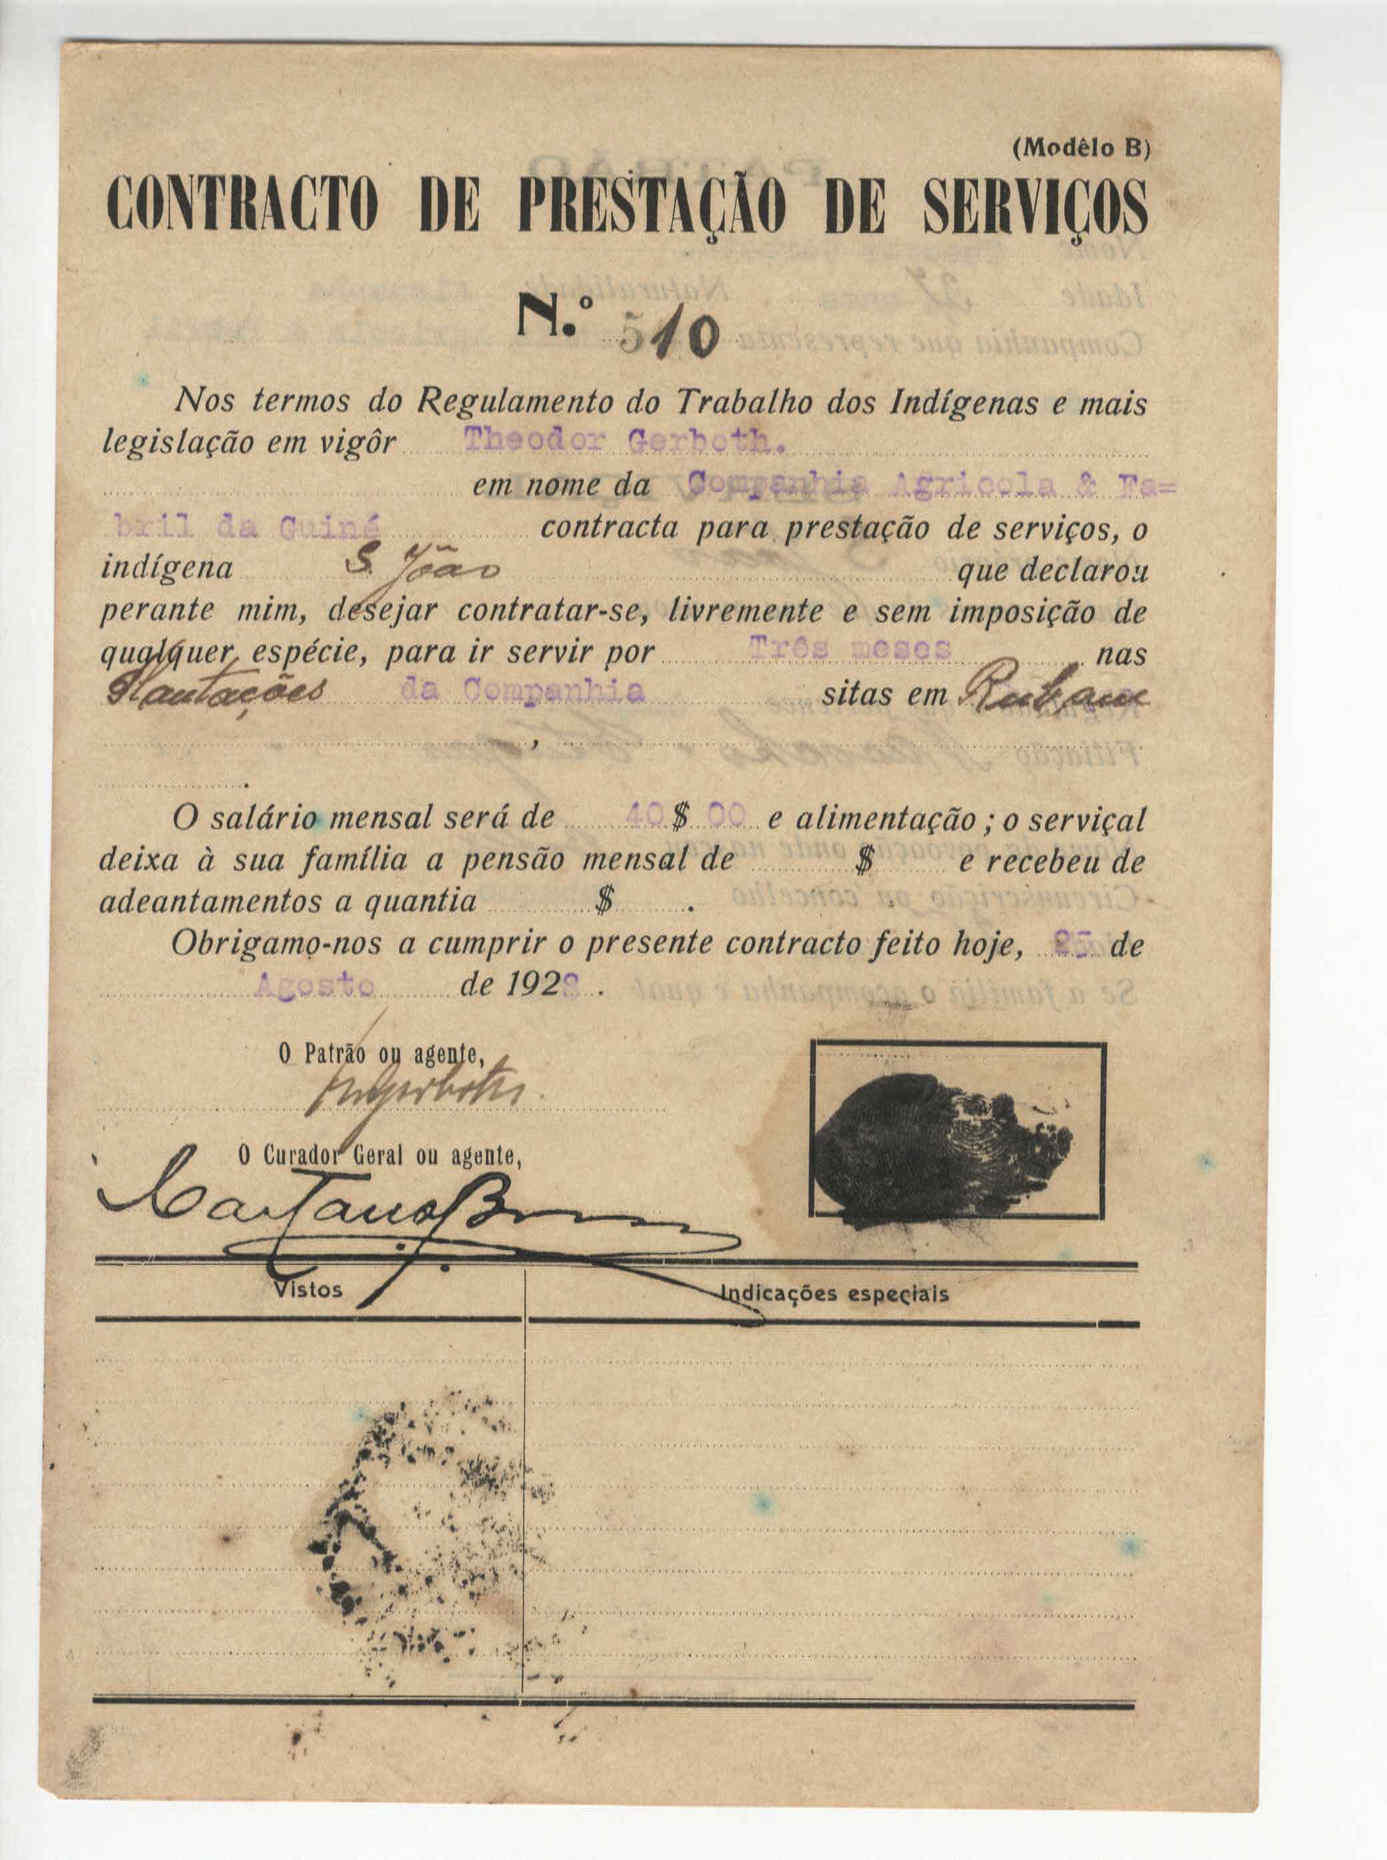 (Modêlo B)
CONTRACTO DE PRESTAÇÃO DE SERVIÇOS
N.º 510
Nos termos do Regulamento do Trabalho dos Indígenas e mais
legislação em vigôr Theodor Gerboth.
em nome da Companhia Agricola & Fa=
bril da Guiné contracta para prestação de serviços, o
indígena S. João que declarou
perante mim, desejar contratar-se, livremente e sem imposição de
qualquer espécie, para ir servir por Três meses nas
Plantações da Companhia sitas em Rubane
,
.
O salário mensal será de 40$00 e alimentação; o serviçal
deixa à sua família a pensão mensal de $ e recebeu de
adeantamentos a quantia $ .
Obrigamo-nos a cumprir o presente contracto feito hoje, de
Agosto de 1928.
O Patrão ou agente,
O Curador Geral ou agente,
Vistos Indicações especiais